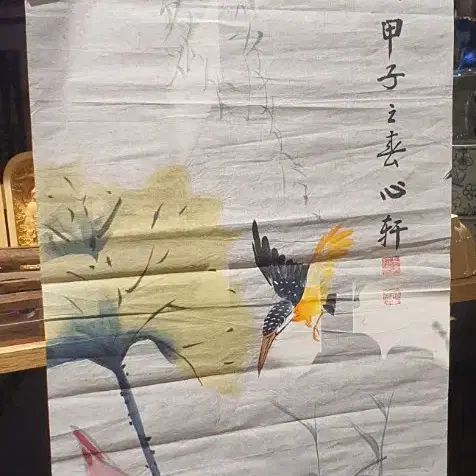 甲子之春心轩